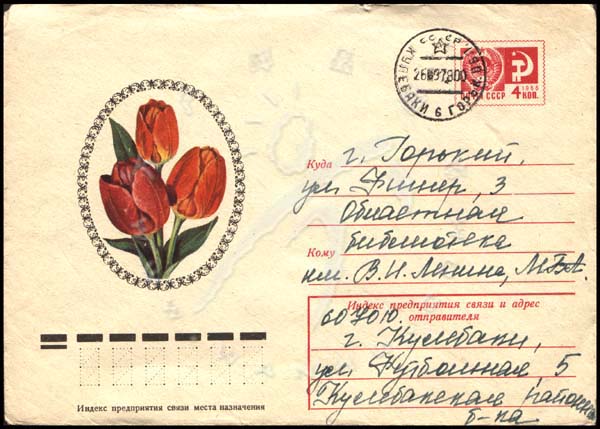 СССР
КУЛЕБАКИ 6 ГОРЬК.
ПОЧТА СССР
1966
4 КОП.
Куда г. Горький,
ул Фигнер, 3
Областная
Кому библиотека
им. В.И. Ленина, МБА.
Индекс предприятия связи и адрес
отправителя
г. Кулебаки,
ул Футбольная, 5
Кулебакская районная
б-ка
Индекс предприятия связи места назначения